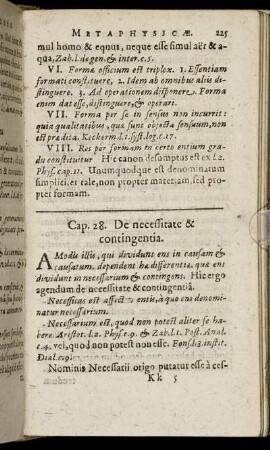 METAPHYSICÆ. 225
mul homo & equus, neque esse simul aër & a-
qua, Zab. l. de gen. & inter. c. 5.
VI. Formæ officium est triplex. 1. Essentiam
formati constituere. 2. Idem ab omnibus aliis di-
stinguere. 3. Ad operationem disponere. Forma
enim dat esse, distinguere, & operari.
VII. Forma per se in sensus non incurrit:
quia qualitatibus, quæ sunt objecta sensuum, non
est prædita. Keckerm. l. 1. syst. log. c. 17.
VIII. Res per formam in certo entium gra-
du constituitur. Hic canon desumptus est ex l. 2.
Phys. cap. 11. Unumquodque est denominatum
simplici, et tale, non propter materiam, sed pro-
ptet formam.
Cap. 28. De necessitate &
contingentia.
A Modis illis, qui dividunt ens in causam &
causatum, dependent hæ differentiæ, quæ ens
dividunt in necessarium & contingens. Hic ergo
agendum de necessitate & contingentiâ.
Necessitas est affectio entis, à quo ens denomi-
natur necessarium.
Necessarium est, quod non potest aliter se ha-
bere. Aristot. l. 2. Phys. c. 9. & Zab. l. 1. Post. Anal.
c. 9. vel, quod non potest non esse. Fons. l. 3. instit.
Dial. c. 9.
Nominis Necessarii origo putatur esse à ces-
Kk 5